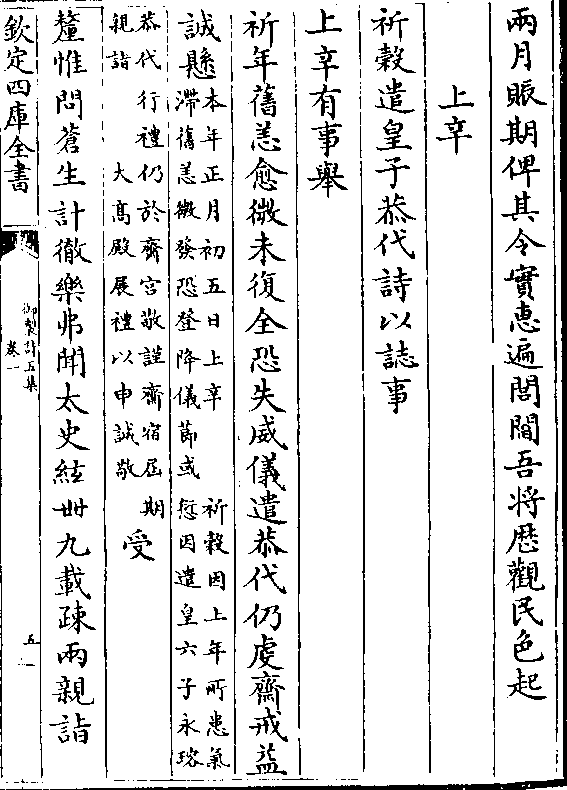 兩月賑期俾其令實恵遍閭閻吾将歴觀民色起
上辛
祈穀遣皇子恭代詩以誌事
上辛有事舉
祈年舊恙愈微未復全恐失威儀遣恭代仍虔齋戒益
誠懸
本年正月初五日上辛 祈穀因上年所患氣
滯舊恙微發恐登降儀節或愆因遣皇六子永瑢
恭代行禮仍於齋宫敬謹齋宿届期
親詣 大髙殿展禮以申誠敬
受
釐惟問蒼生計徹樂弗聞太史絃卌九載疎兩親詣
欽定四庫全書
御製詩五集
卷一
五